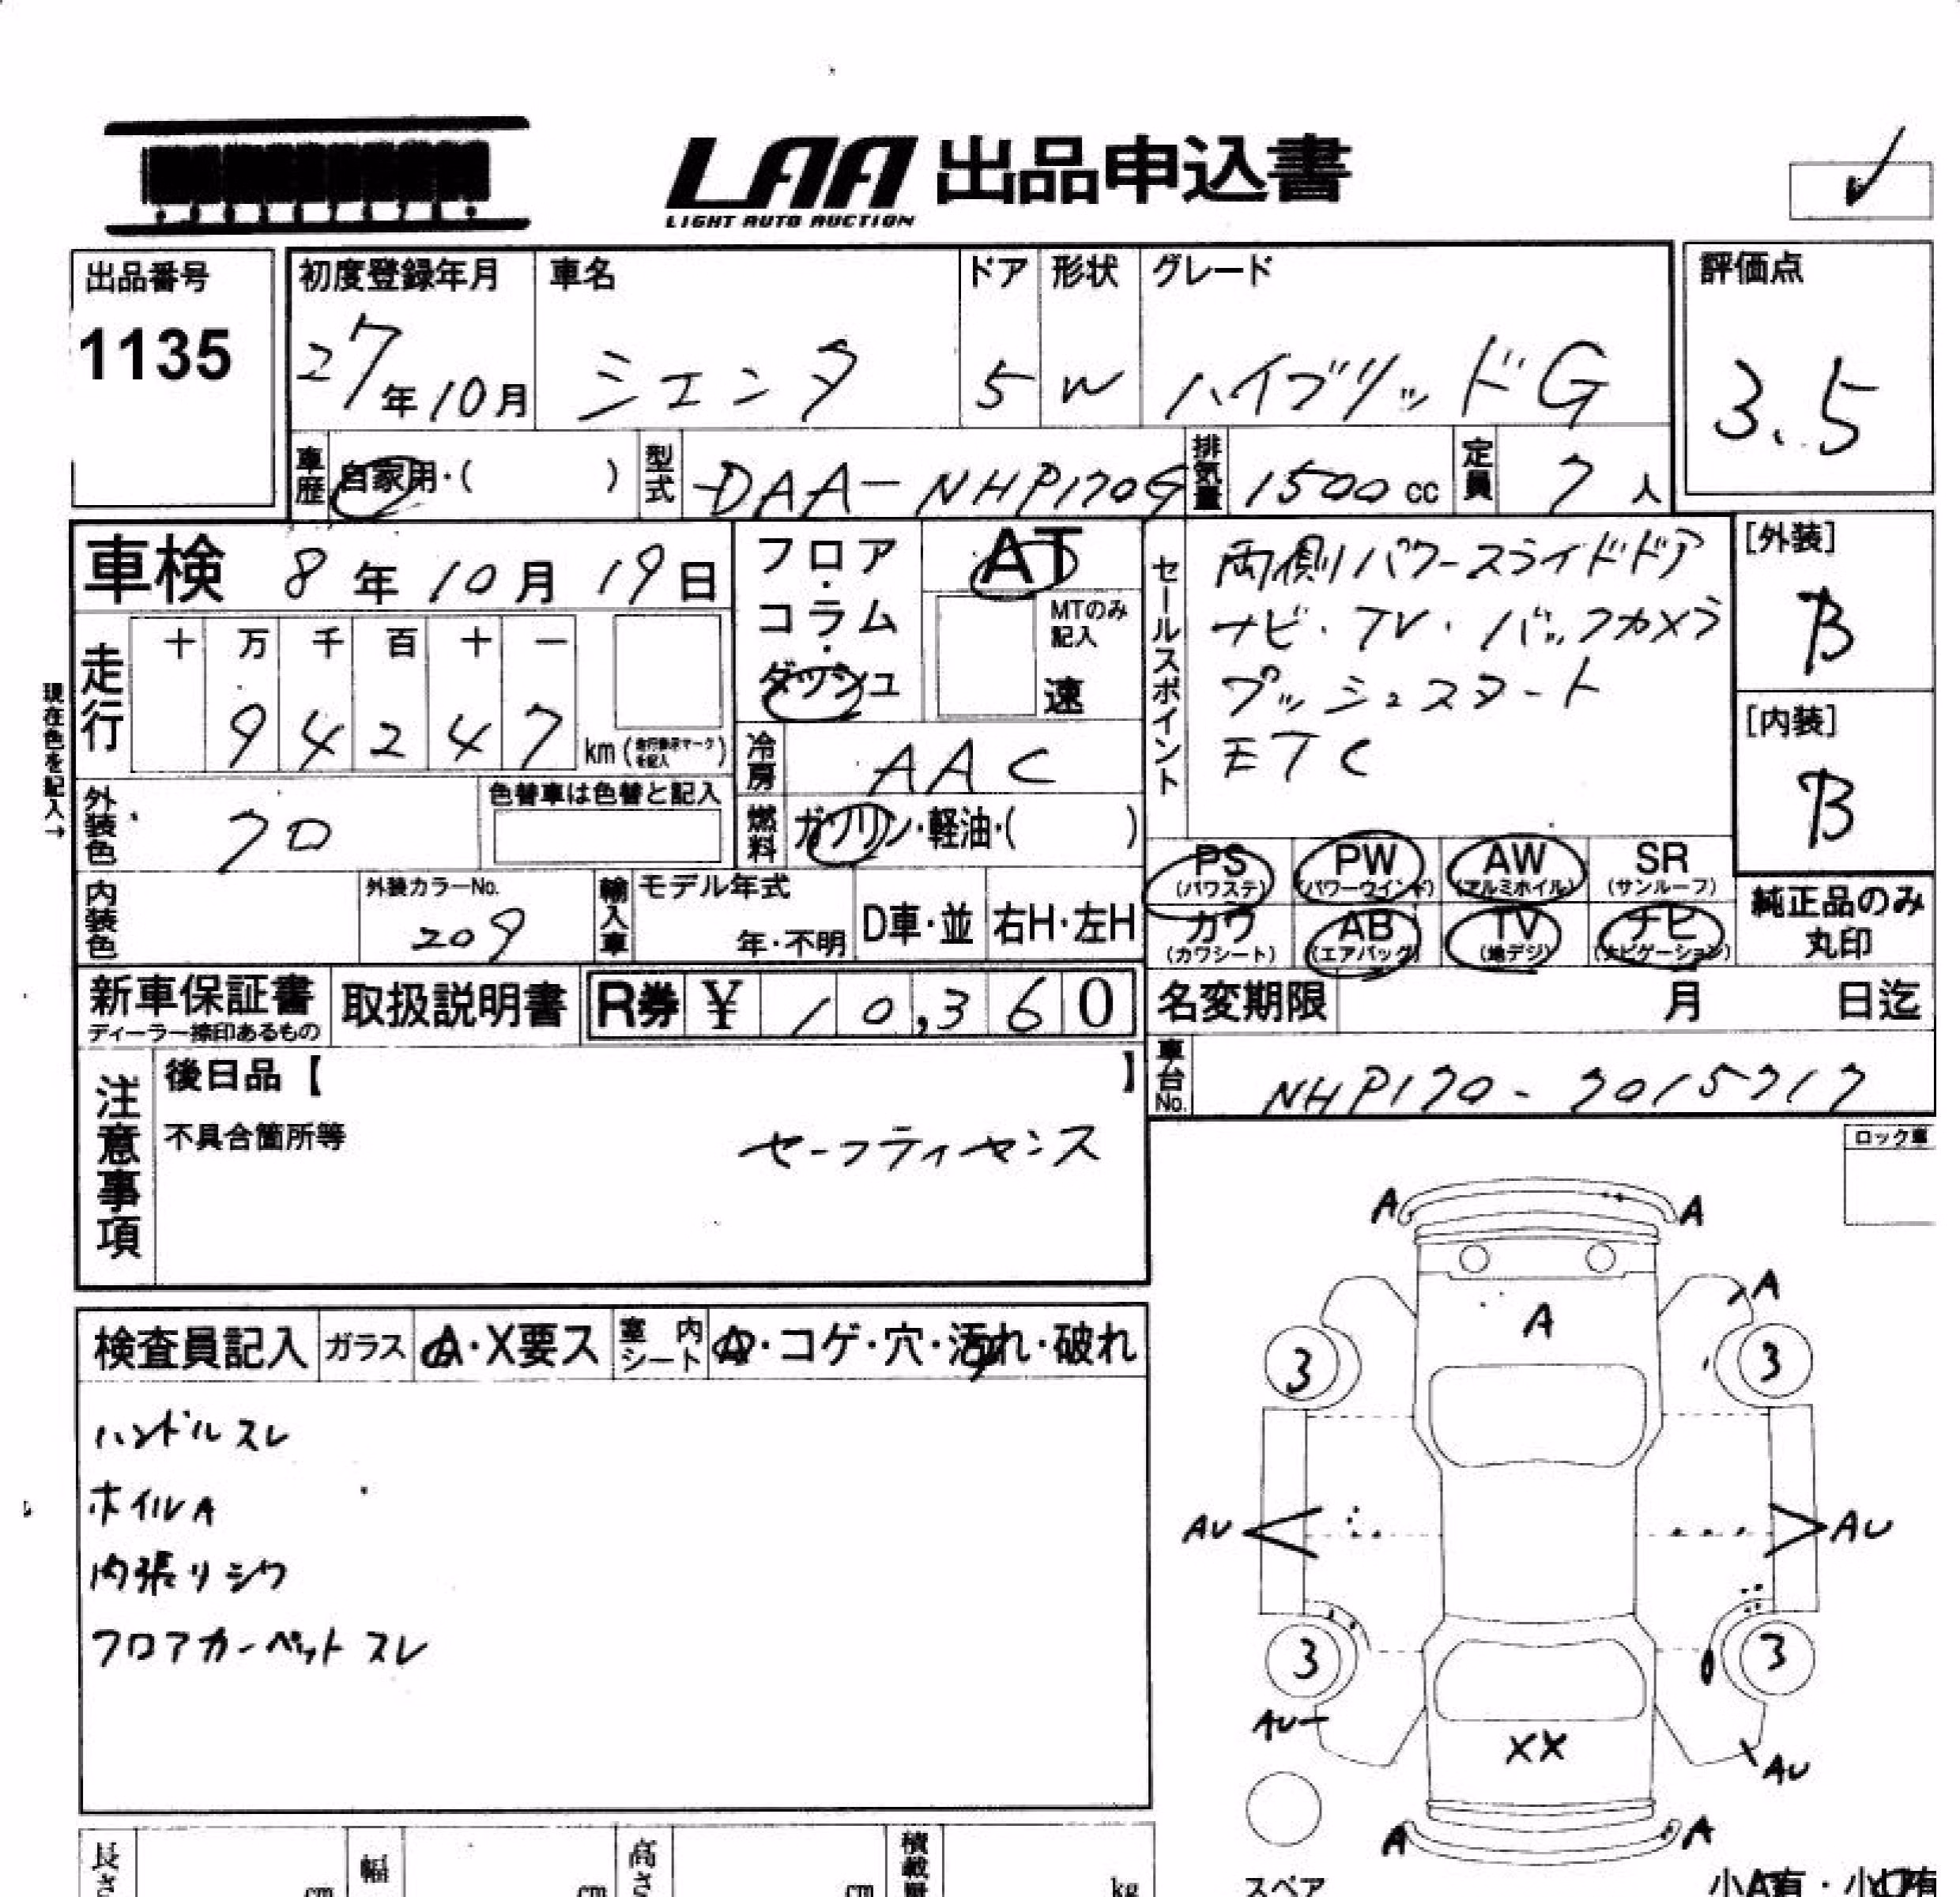 LAA 出品申込書
LIGHT AUTO AUCTION
出品番号
1135
初度登録年月
27年10月
車名
シエンタ
ドア
5
形状
W
グレード
ハイブリッドG
評価点
3.5
車歴
自家用・( )
型式
DAA-NHP170G
排気量
1500cc
定員
7人
車検 8年10月19日
走行
十 万 千 百 十 一
9 4 2 4 7
km(走行表示マークを記入)
現在色を記入→
外装色
クロ
色替車は色替と記入
内装色
外装カラーNo.
209
輸入車
モデル年式
年・不明
D車・並
右H・左H
フロア・コラム・ダッシュ
AT
MTのみ記入
速
冷房
AAC
燃料
ガソリン・軽油・( )
セールスポイント
両側パワースライドドア
ナビ・TV・バックカメラ
プッシュスタート
ETC
[外装]
B
[内装]
B
PS (パワステ)
PW (パワーウインド)
AW (アルミホイル)
SR (サンルーフ)
カワ (カワシート)
AB (エアバッグ)
TV (地デジ)
ナビ (ナビゲーション)
純正品のみ
丸印
新車保証書
ディーラー捺印あるもの
取扱説明書
R券 ¥10,360
名変期限 月 日迄
車台No.
NHP170-7015717
注意事項
後日品【 】
不具合箇所等
セーフティセンス
ロック車
検査員記入
ガラス
A・X要ス
室内シート
A・コゲ・穴・汚れ・破れ
ハンドルスレ
ホイルA
内張りシワ
フロアカーペットスレ
A A
A
A
3 3
AU AU
3 3
AU
XX
AU
A A
スペア
長さ cm
幅 cm
高さ cm
積載量 kg